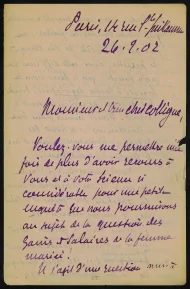 Paris, 14 rue
26.9.02
Monsieur et cher collègue,
Voulez-vous me permettre une
fois de plus d'avoir recours à
vous et à votre
considérable pour une petite
enquête que nous poursuivons
au sujet de la question des
Gains & Salaires de la femme
mariée.
Il s'agit d'une question